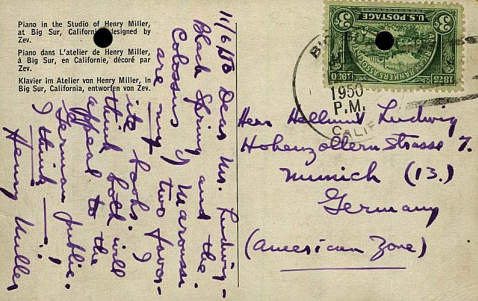 Piano in the Studio of Henry Miller,
at Big Sur, Californi designed by
Zev.
Piano dans L'atelier de Henry Miller,
à Big Sur, en Californie, décoré par
Zev.
Klavier im Atelier von Henry Miller, in
Big Sur, California, entworfen von Zev.
11/6/50 Dear Mr. Ludwig-
Black Spring and the
Colossus of Maroussi
are my two favor-
ite books. I
think both will
appeal to the
German public.
I think —!
Henry Miller
3¢ U.S. POSTAGE 3¢
1950
P.M.
CALIF
Herr Hellmut Ludwig
Hohenzollern Strasse 7.
Munich (13.)
Germany
(American Zone)